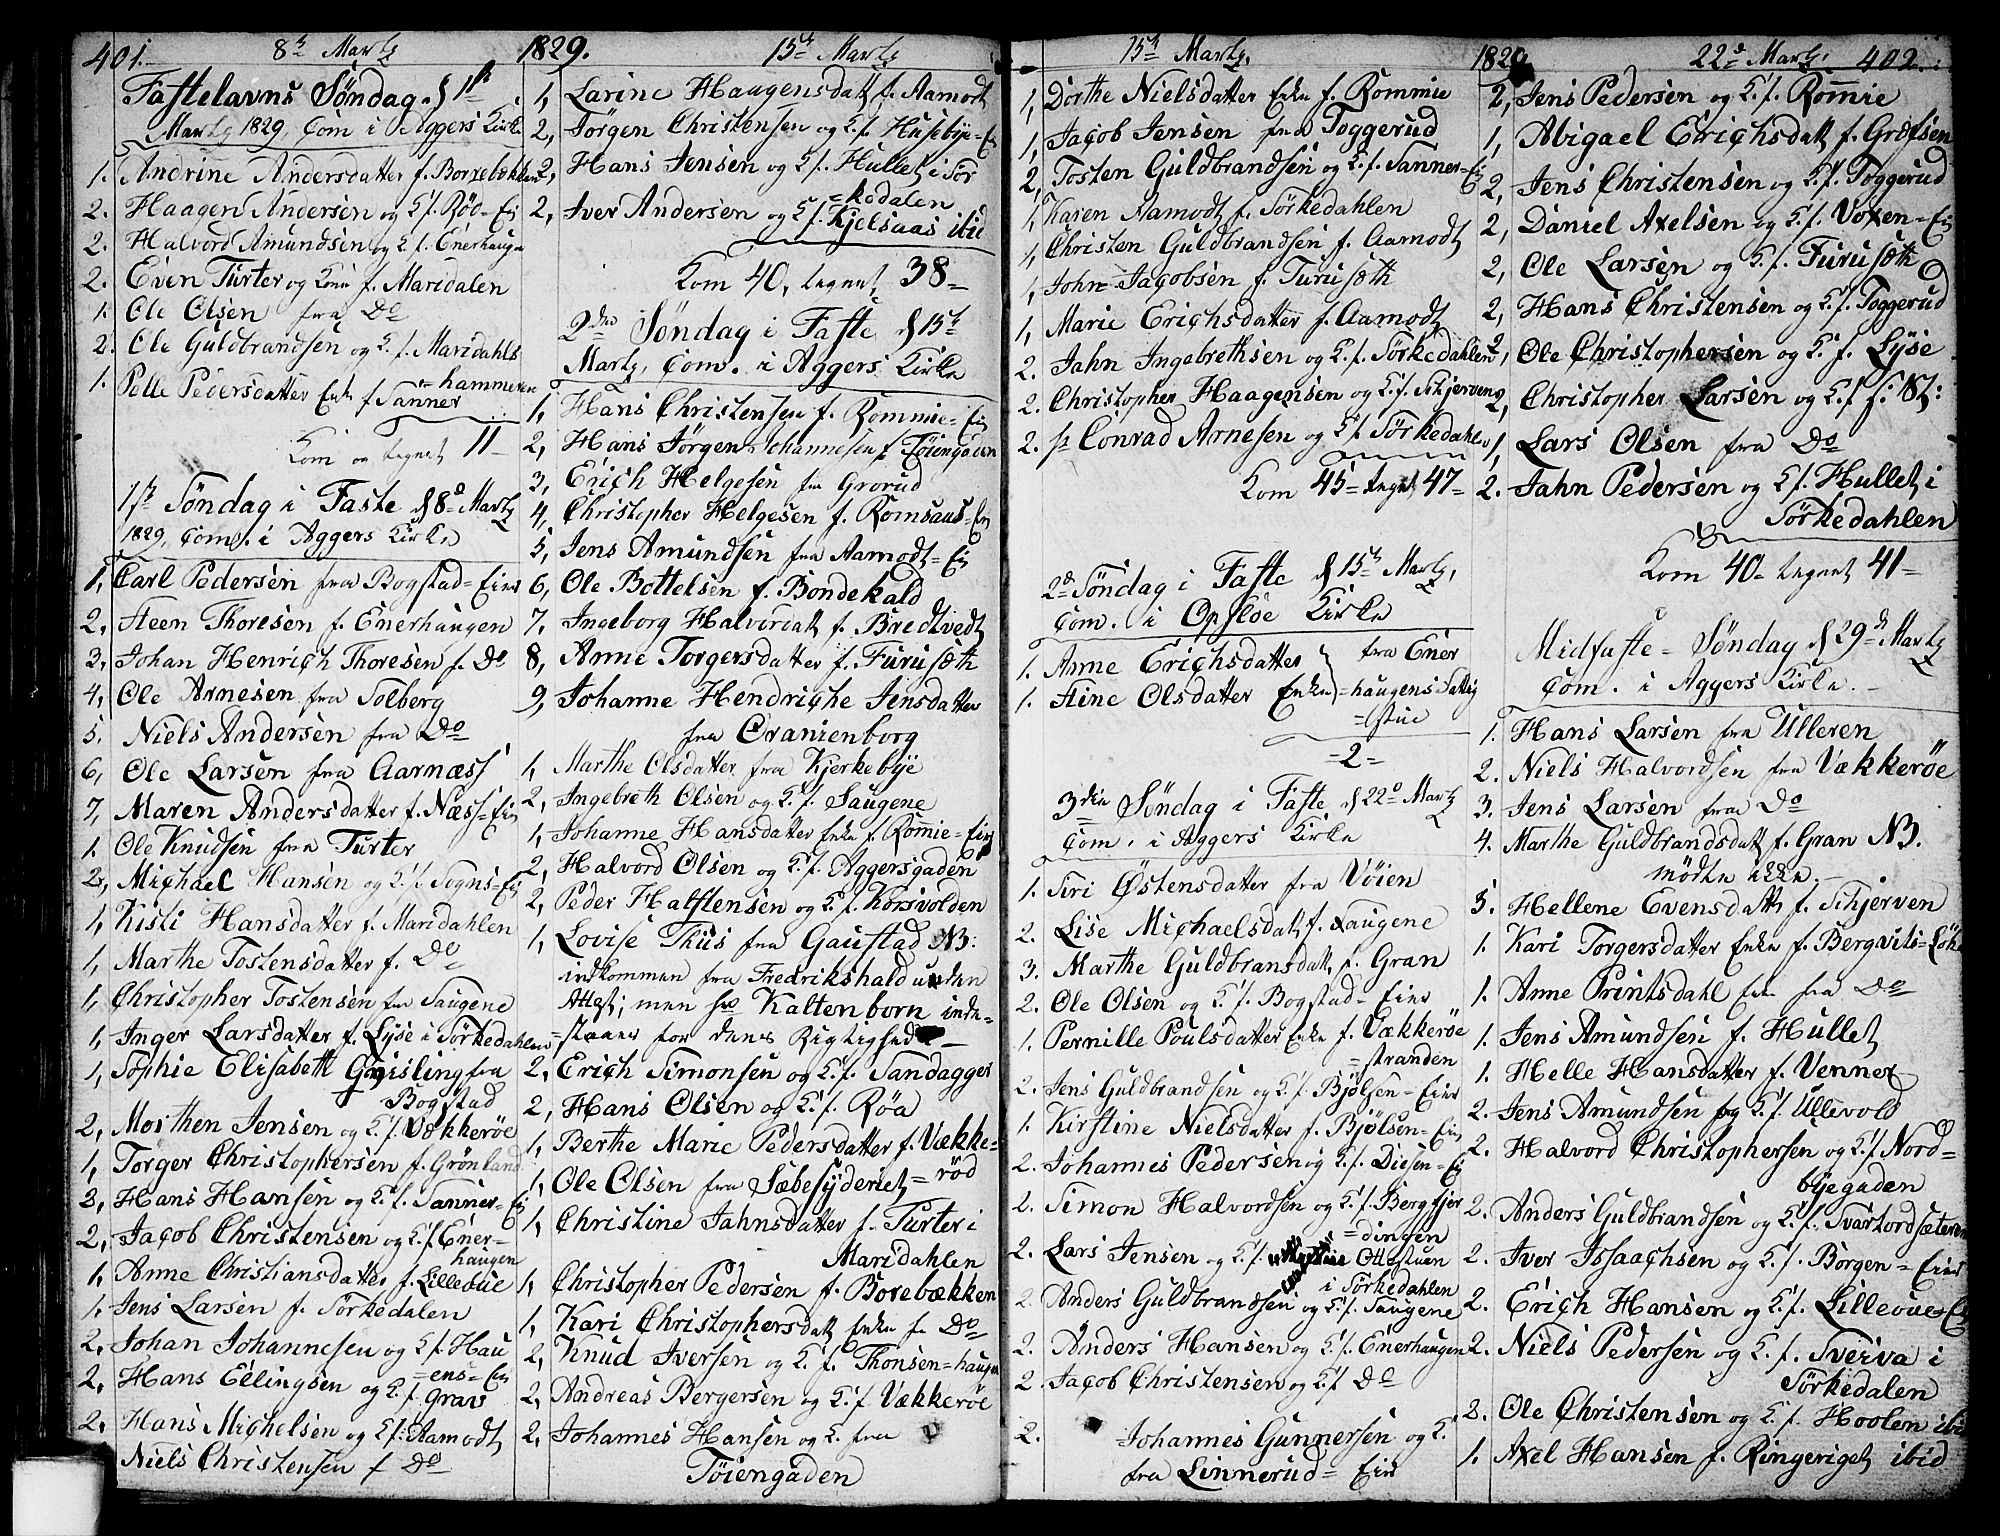 401. 8de Martz 1829. 15de Martz
Fastelavns Søndag d 1ste
Martz 1829, Com i Aggers Kirke
1. Andrine Andersdatter f. Borrebækken
2. Haagen Andersen og K f. Rød=Eie
2. Halvord Amundsen og K f. Enerhaugen
2. Even Turter og Kone f. Maridalen
1. Ole Olsen fra Do
2. Ole Guldbrandsen og K. f. Maridahls
=hammeren
1. Pelle Pedersdatter Enke f Sanner
Kom og tegnet 11
1ste Søndag i Faste d 8de Martz
1829, Com. i Aggers Kirke
1, Carl Pedersen fra Bogstad=Eier
2, Steen Thoresen f. Enerhaugen
3, Johan Henrich Thoresen f. Do
4, Ole Arnesen fra Solberg
5. Niels Andersen fra Do
6, Ole Larsen fra Aarnæss
7, Maren Andersdatter f. Næss=Eie
1. Ole Knudsen fra Turter
2, Michael Hansen og K. f. Sogns=Eie
1, Kisti Hansdatter f. Maridahlen
1, Marthe Tostensdatter f. Do
1, Christopher Tostensen fra Saugene
1, Inger Larsdatter f. Lyse i Sørkedahlen
1, Sophie Elisabeth Gjsling fra
Bogstad
2, Morthen Jensen og K. f. Vækkerøe
1, Torger Christophersen f. Grønland
3, Hans Hansen og K. f. Sanner=Eie
2, Jacob Christensen og K. f. Ener=
haugen
1, Anne Christiansdatter f. Lillevue
1, Jens Larsen f. Sørkedalen
2. Johan Johannesen og K f. Hau
=ens=Eie
2, Hans Ellingsen og K. f. Grav
2. Hans Michelsen og K f. Aamodt
Niels Christensen f Do
1, Larine Haagensdatt f. Aamodt
2, Jørgen Christensen og K f. Husebye=Eie
2, Hans Jensen og K f. Hullet i Sør
=kedalen
2, Iver Andersen og K f. Kjelsaas ibid
Kom 40, tegnet 38=
2den Søndag i Faste d 15de
Martz, Com. i Aggers Kirke
1, Hans Christensen f. Rommie=Eie
2, Hans Jørgen Johannesen f. Tøiengaden
3, Erich Helgesen fra Grorud
4, Christopher Helgesen f. Romsaas=Eie
5, Jens Amundsen fra Aamodt=Eie
6, Ole Bottelsen f. Bondekald
7. Ingeborg Halvordatt f. Bredtvedt
8, Anne Torgersdatter f. Furusæth
9, Johanne Hendriche Jensdatter
fra Oranienborg
1, Marthe Olsdatter fra Kjerkebye
2, Ingebreth Olsen og K. f. Saugene
1, Johanne Hansdatter Enke f. Romie=Eie
2, Halvord Olsen og K. f. Aggersgaden
2, Peder Halstensen og K. f. Korsvolden
1, Lovise Thiis fra Gaustad NB:
indkommen fra Fredrikshald uden
Attest; men Kaltenborn inde=
=staaer for denes Rigtighed
2, Erich Simonsen og K. f. Sandagger
2, Hans Olsen og K. f. Røa
1, Berthe Marie Pedersdatter f. Vække=
=rød
1, Ole Olsen fra Sæbesyderiet
1, Christine Jahnsdatter f. Turter i
Maridahlen
1, Christopher Pedersen f. Borebækken
1, Kari Christophersdatt Enke fra Do
2, Knud Iversen og K. f. Thonsen=haugen
2, Andreas Bergersen og K. f. Vækkerøe
2, Johannes Hansen og K. fra
Tøiengaden
15de Martz. 1829 22de Martz. 402.
1, Dorthe Nielsdatter Enke f. Rommie
1, Jacob Jensen fra Toggerud
2, Tosten Guldbrandsen og K. f. Sanner=Eie
1, Karen Aamodt f. Sørkedahlen
1, Christen Guldbrandsen f. Aamodt
1, John Jacobsen f. Furusæth
1, Marie Erichsdatter f. Aamodt
2. Jahn Ingebrethsen og K. f. Sørkedahlen
2. Christopher Haagensen og K. f. Skjerven
2. Conrad Arnesen og K f. Sørkedahlen
Kom 45= tegnet 47=
2de Søndag i Faste d 15de Martz,
Com. i Opsloe Kirke
1. Anne Erichsdatter fra Ener
1. Stine Olsdatter Enke =haugens Fattig
=stue
=2=
3die Søndag i Faste d 22de Martz
Com. i Aggers Kirke
1. Siri Østensdatter fra Vøien
2. Lise Michaelsdatt f. Saugene
3. Marthe Guldbransdatt f. Gran
2. Ole Olsen og K. f. Bogstad=Eier
1. Pernille Poulsdatter Enke f. Vækkerøe
=stranden
2. Jens Guldbrandsen og K. f. Bjølsen=Eier
1. Kirstine Nielsdatter f. Bjølsen=Eie
2. Johannes Pedersen og K. f. Diesen=Eie
2. Simon Halvordsen og K. f. Bergsjer
=dingen
2. Lars Jensen og K. f. Ottestuen
i Sørkedahlen
2. Anders Guldbrandsen og K. f. Saugene
2. Anders Hansen og K. f. Enerhaugen
2. Jacob Christensen og K. f. Do
2. Johannes Gunnersen og K.
fra Linnerud=Eie
2, Jens Pedersen og K. f. Romie
1, Abigael Erichsdatt f. Græfsen
2, Jens Christensen og K. f. Toggerud
2, Daniel Axelsen og K. f. Voxen=Eie
2, Ole Larsen og K. f. Furusæth
2, Hans Christensen og K. f. Toggerud
2, Ole Christophersen og K. f. Lyse
2, Christopher Larsen og K f. St:
1, Lars Olsen fra Do
2. Jahn Pedersen og K f. Hullet i
Sørkedahlen
Kom 40= tegnet 41=
Midfaste=Søndag d 29de Martz
Com. i Aggers Kirke.
1. Hans Larsen fra Ulleren
2. Niels Halvordsen fra Vækkerøe
3. Jens Larsen fra Do
4. Marthe Guldbrandsdatt f. Gran NB.
mødte ikke.
5. Hellene Evensdatt f. Skjerven
1. Kari Torgersdatter Enke f. Bergvits=Løke
1. Anne Printsdahl Enke fra Do
1. Jens Amundsen f. Hullet
1. Helle Hansdatter f. Venner
2. Jens Amundsen og K. f. Ullevold
2. Halvord Christophersen og K. f. Nord=
byegaden
2. Anders Guldbrandsen og K. f. Svartordsæteren
2. Iver Issaachsen og K. f. Borgen=Eier
2. Erich Hansen og K. f. Lillevue=Eie
2. Niels Pedersen og K. f. Sverva i
Sørkedalen
2. Ole Christensen og K. f. Hoolen ibid
1. Axel Hansen f. Ringeriget ibid